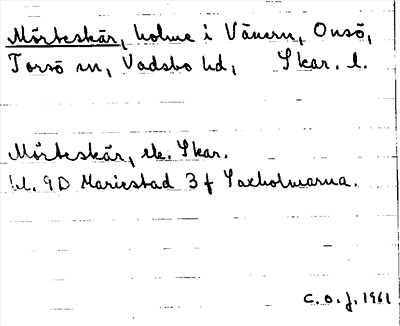 Mörteskär, holme i Vänern, Onsö,
Torsö sn, Vadsbo hd, Skar. l.
Mörteskär, ek. Skar.
bl. 9D Mariestad 3 f Laxholmarna.
C. O. J. 1961